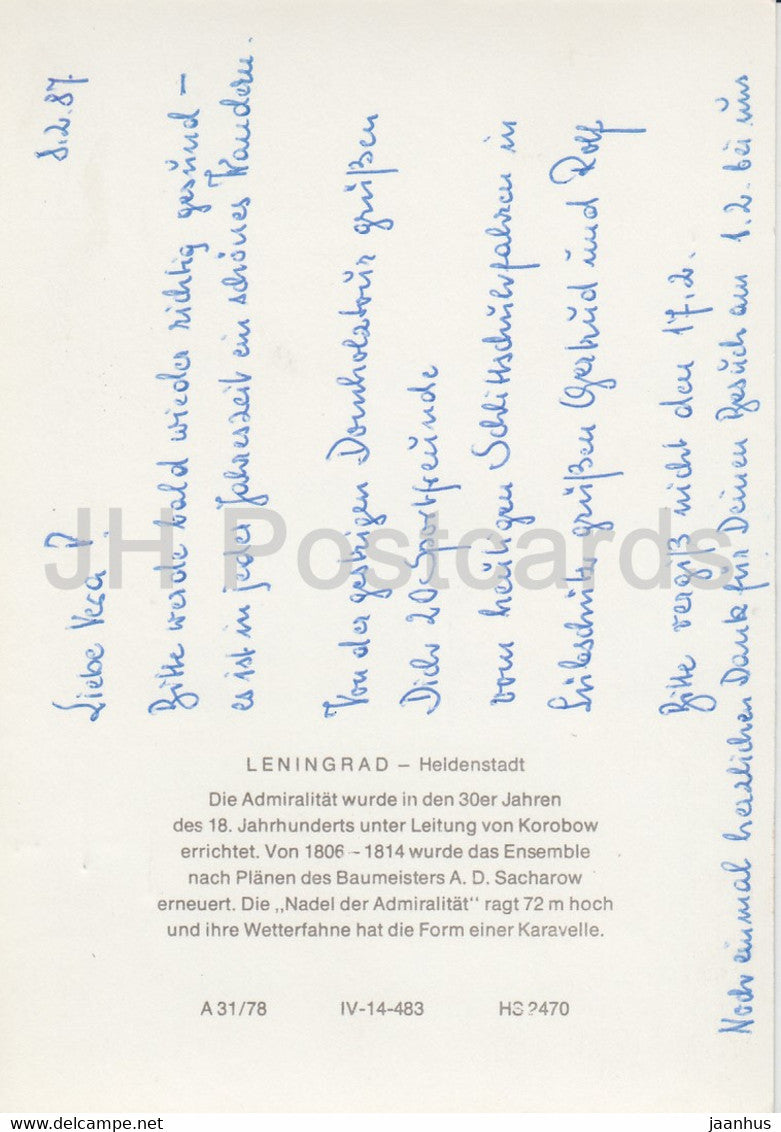 8.2.87.
Liebe Vera!
Bitte werde bald wieder richtig gesund –
es ist in jeder Jahreszeit ein schönes Wandern.
Von der gestrigen Dornholztour grüßen
Dich 20 Sportfreunde
vom heutigen Schlittschuhfahren in
grüßen Gertrud und Rolf
Bitte vergiß nicht den 17.2.
Noch einmal herzlichen Dank für Deinen Besuch am 1.2. bei uns
LENINGRAD – Heldenstadt
Die Admiralität wurde in den 30er Jahren
des 18. Jahrhunderts unter Leitung von Korobow
errichtet. Von 1806 – 1814 wurde das Ensemble
nach Plänen des Baumeisters A. D. Sacharow
erneuert. Die „Nadel der Admiralität" ragt 72 m hoch
und ihre Wetterfahne hat die Form einer Karavelle.
A 31/78 IV-14-483 HS 2470
JH Postcards
www.delcampe.net
jaanhus